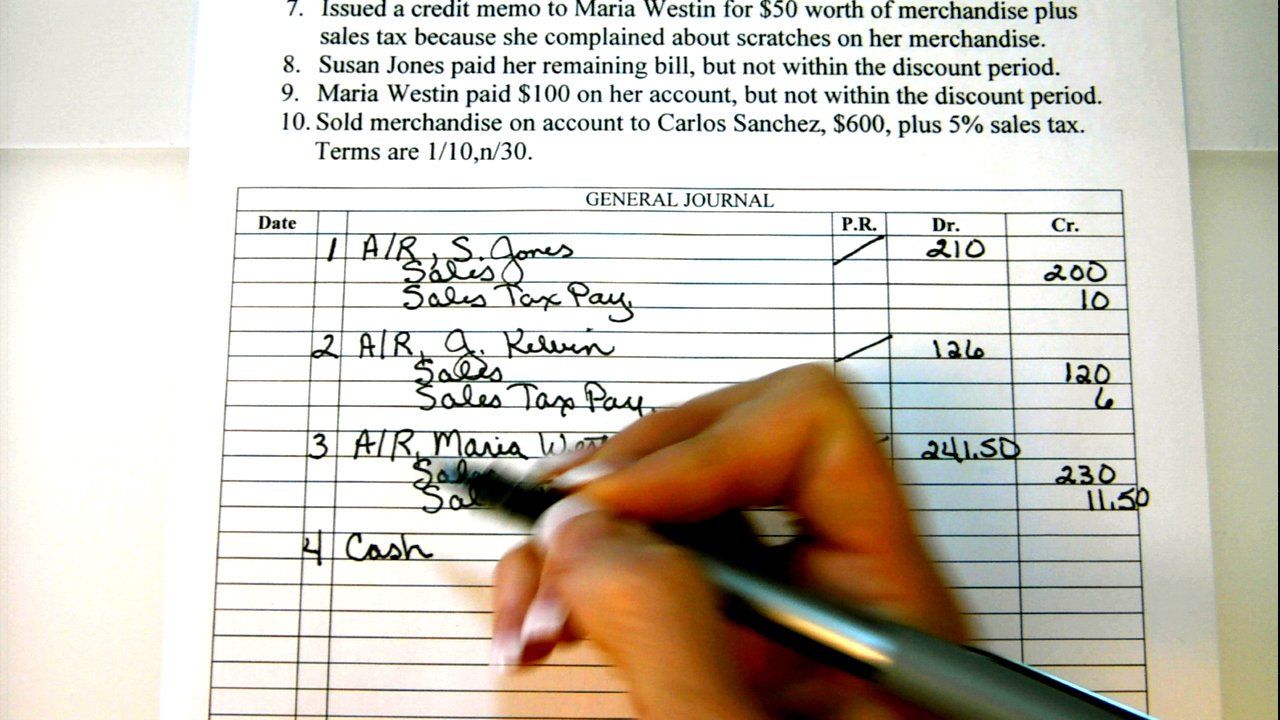 7. Issued a credit memo to Maria Westin for $50 worth of merchandise plus
sales tax because she complained about scratches on her merchandise.
8. Susan Jones paid her remaining bill, but not within the discount period.
9. Maria Westin paid $100 on her account, but not within the discount period.
10. Sold merchandise on account to Carlos Sanchez, $600, plus 5% sales tax.
Terms are 1/10,n/30.
GENERAL JOURNAL
Date P.R. Dr. Cr.
1 A/R, S. Jones 210
Sales 200
Sales Tax Pay. 10
2 A/R, A. Kelvin 126
Sales 120
Sales Tax Pay. 6
3 A/R, Maria 241.50
Sales 230
11.50
4 Cash